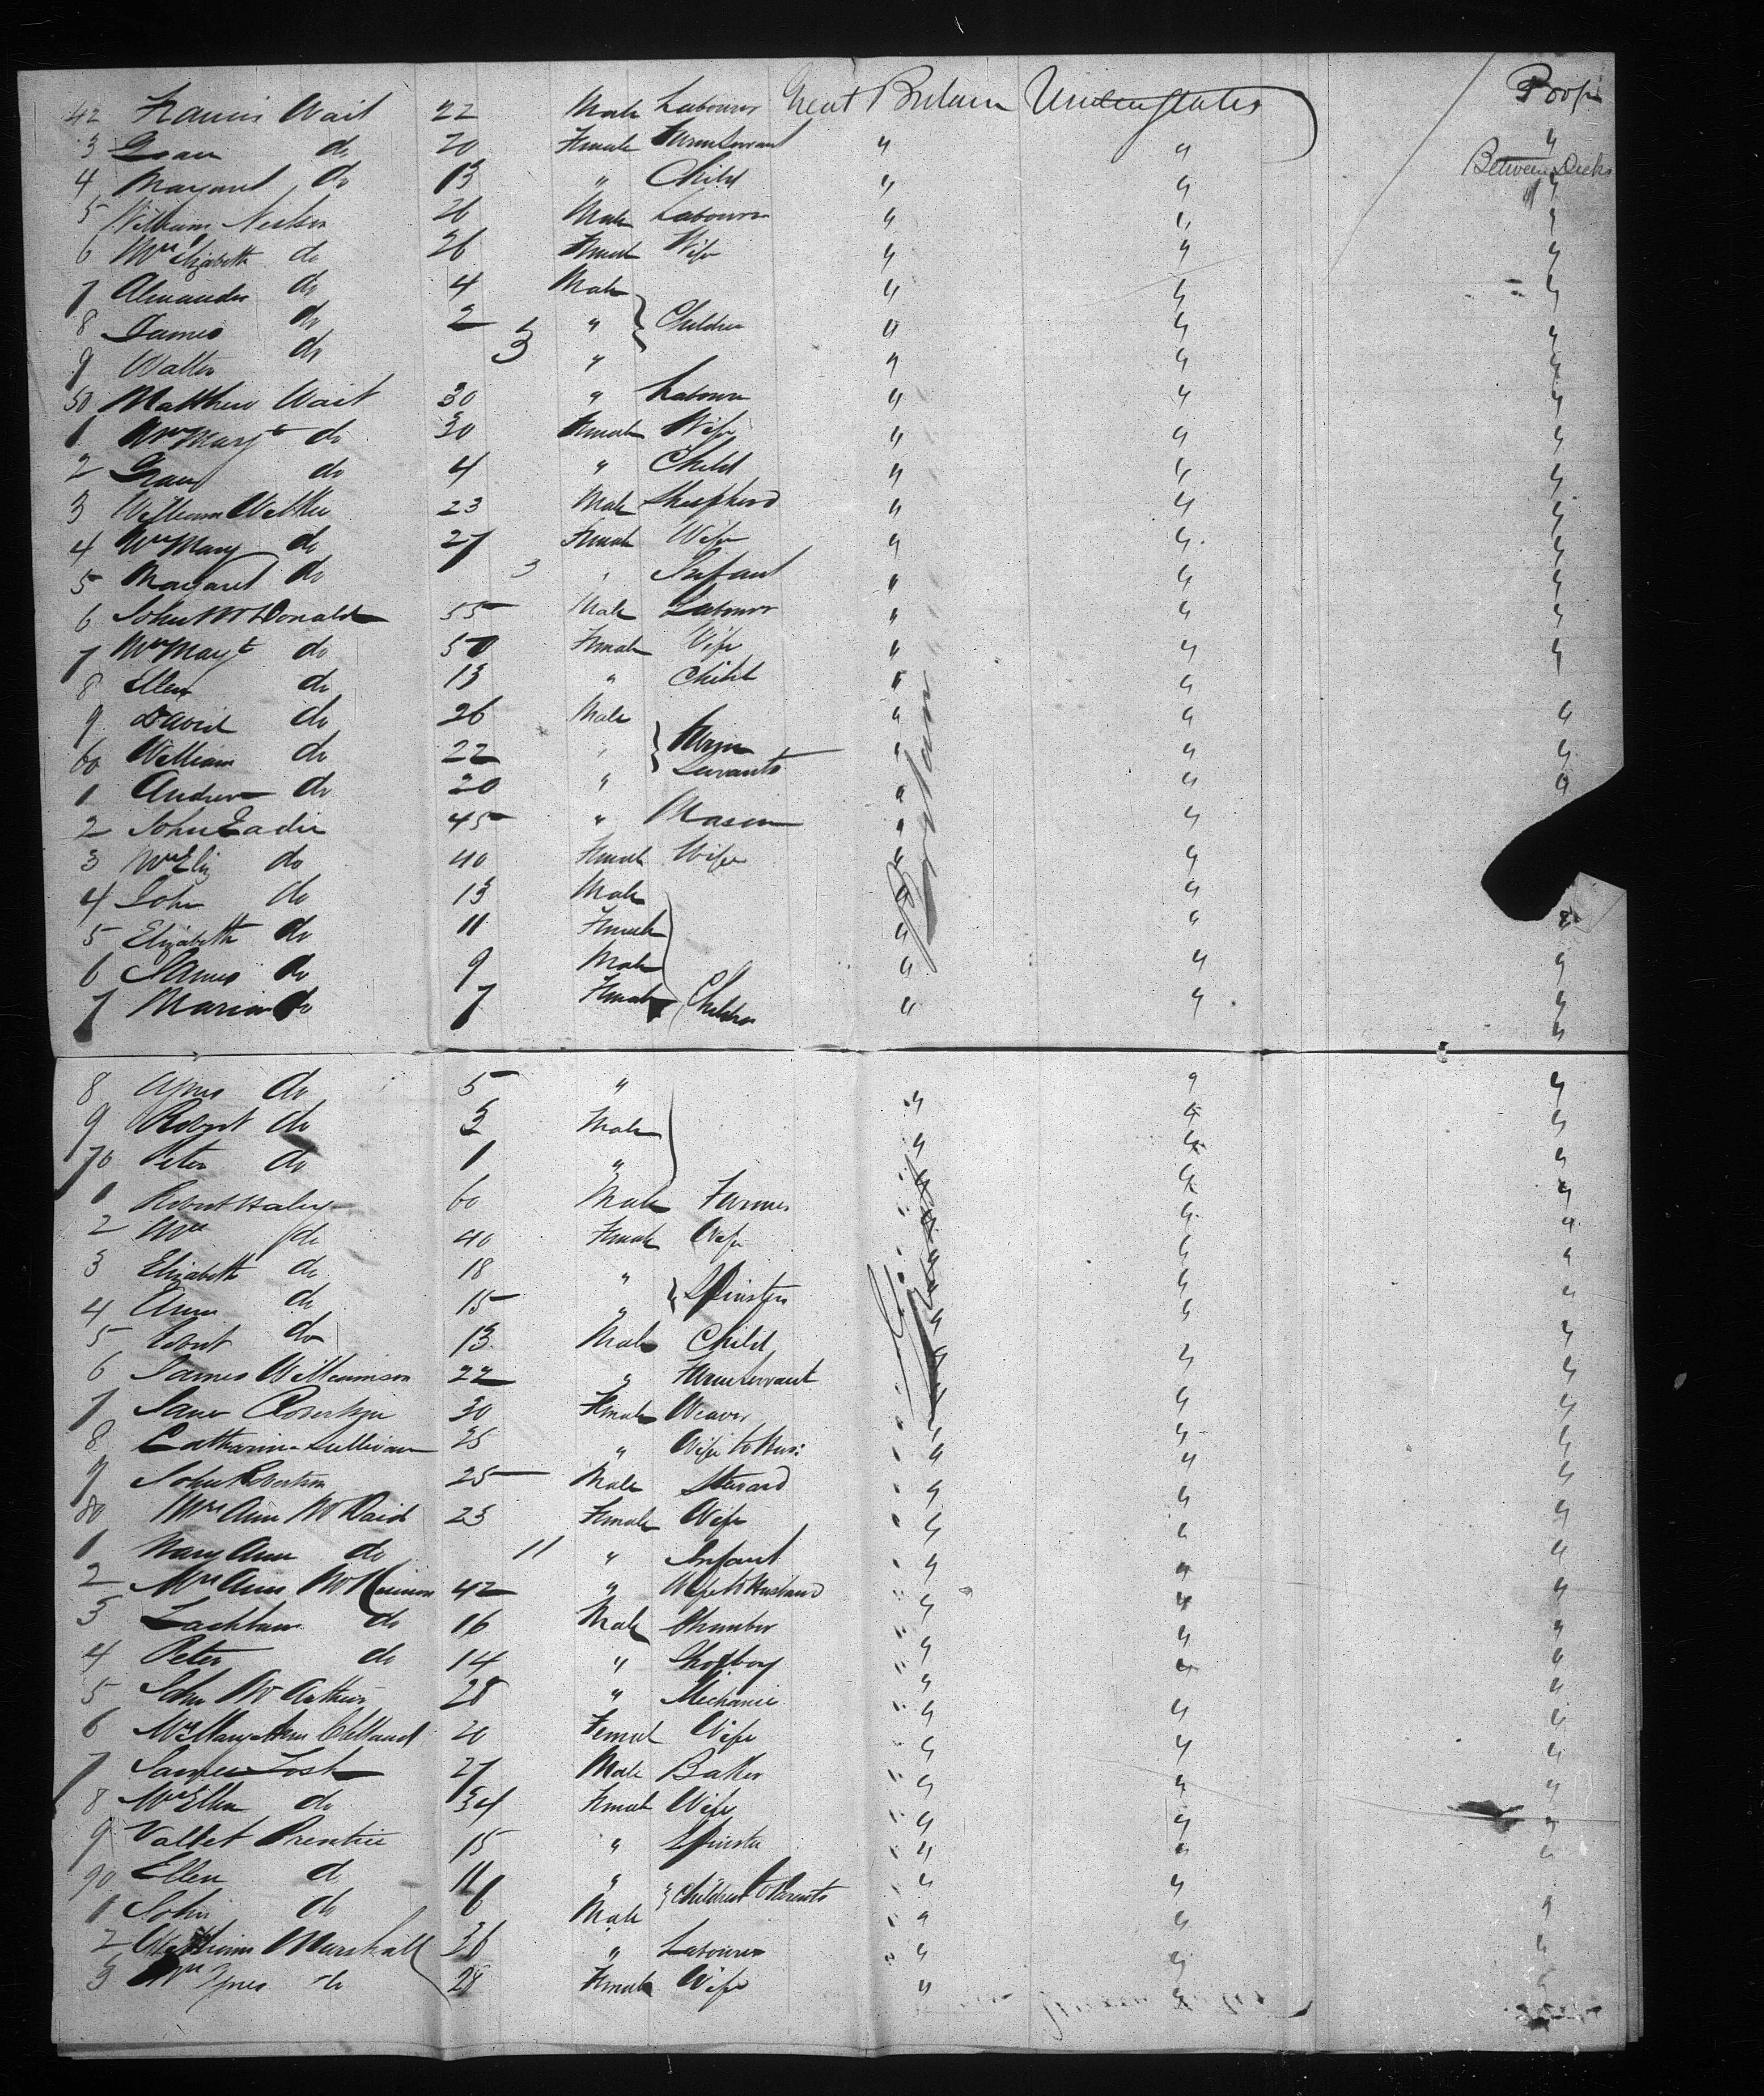 42 Francis Wait 22 Male Labourer Great Britain United States Poop
3 do 20 Female Farm Servant " " "
4 Margaret do 13 " Child " " Between Decks "
5 William 26 Male Labourer " " "
6 Mrs Elizabeth do 26 Female Wife " " "
7 Alexander do 4 Male " " "
8 James do 2 " } Children " " "
9 Walter do 3 " " " "
50 Matthew Wait 30 " Labourer " " "
1 Mrs Margt do 30 Female Wife " " "
2 do 4 " Child " " "
3 William 23 Male Shepherd " " "
4 Mrs Mary do 27 Female Wife " " "
5 Margaret do 3 " Infant " " "
6 John McDonald 55 Male Labourer " " "
7 Mrs Mart do 50 Female Wife " " "
8 Ellen do 13 " Child " " "
9 David do 26 Male " " "
60 William do 22 " } Farm Servants " " "
1 Andrew do 20 " " " "
2 John Eadie 45 " Mason " " "
3 Mrs Eliz do 40 Female Wife " "
4 John do 13 Male " "
5 Elizabeth do 11 Female " " "
6 James do 9 Male " " "
7 Maria do 7 Female Children " " "
8 Agnes do 5 " " " "
9 Robert do 3 Male " " "
70 Peter do 1 " " " "
1 Robert 60 Male Farmer " " "
2 Mrs do 40 Female Wife " " "
3 Elizabeth do 18 " " " "
4 Ann do 15 " } Spinsters " " "
5 Robert do 13 Male Child " " "
6 James Williamson 22 " Farm Servant " " "
7 Jane Robertson 30 Female Weaver " " "
8 Catharine Sullivan 25 " Wife to Hus: " " "
9 John Robertson 25 Male Steward " " "
80 Mrs Ann 23 Female Wife " " "
1 Mary Ann do 11 " Infant " " "
2 Mrs Ann McKinnon 42 " Wife to Husband " " "
3 Lachlan do 16 Male Plumber " " "
4 Peter do 14 " Shopboy " " "
5 John McArthur 28 " Mechanic " " "
6 Mrs Mary Ann Clelland 20 Female Wife " " "
7 James Tosh 27 Male Baker " " "
8 Mrs Ellen do 34 Female Wife " " "
9 Prentice 15 " Spinster " " "
90 Ellen do 11 " } Children to Parents " " "
1 John do 6 Male " " "
2 William Marshall 36 " Labourer " " "
3 Mrs Agnes do 28 Female Wife " " "